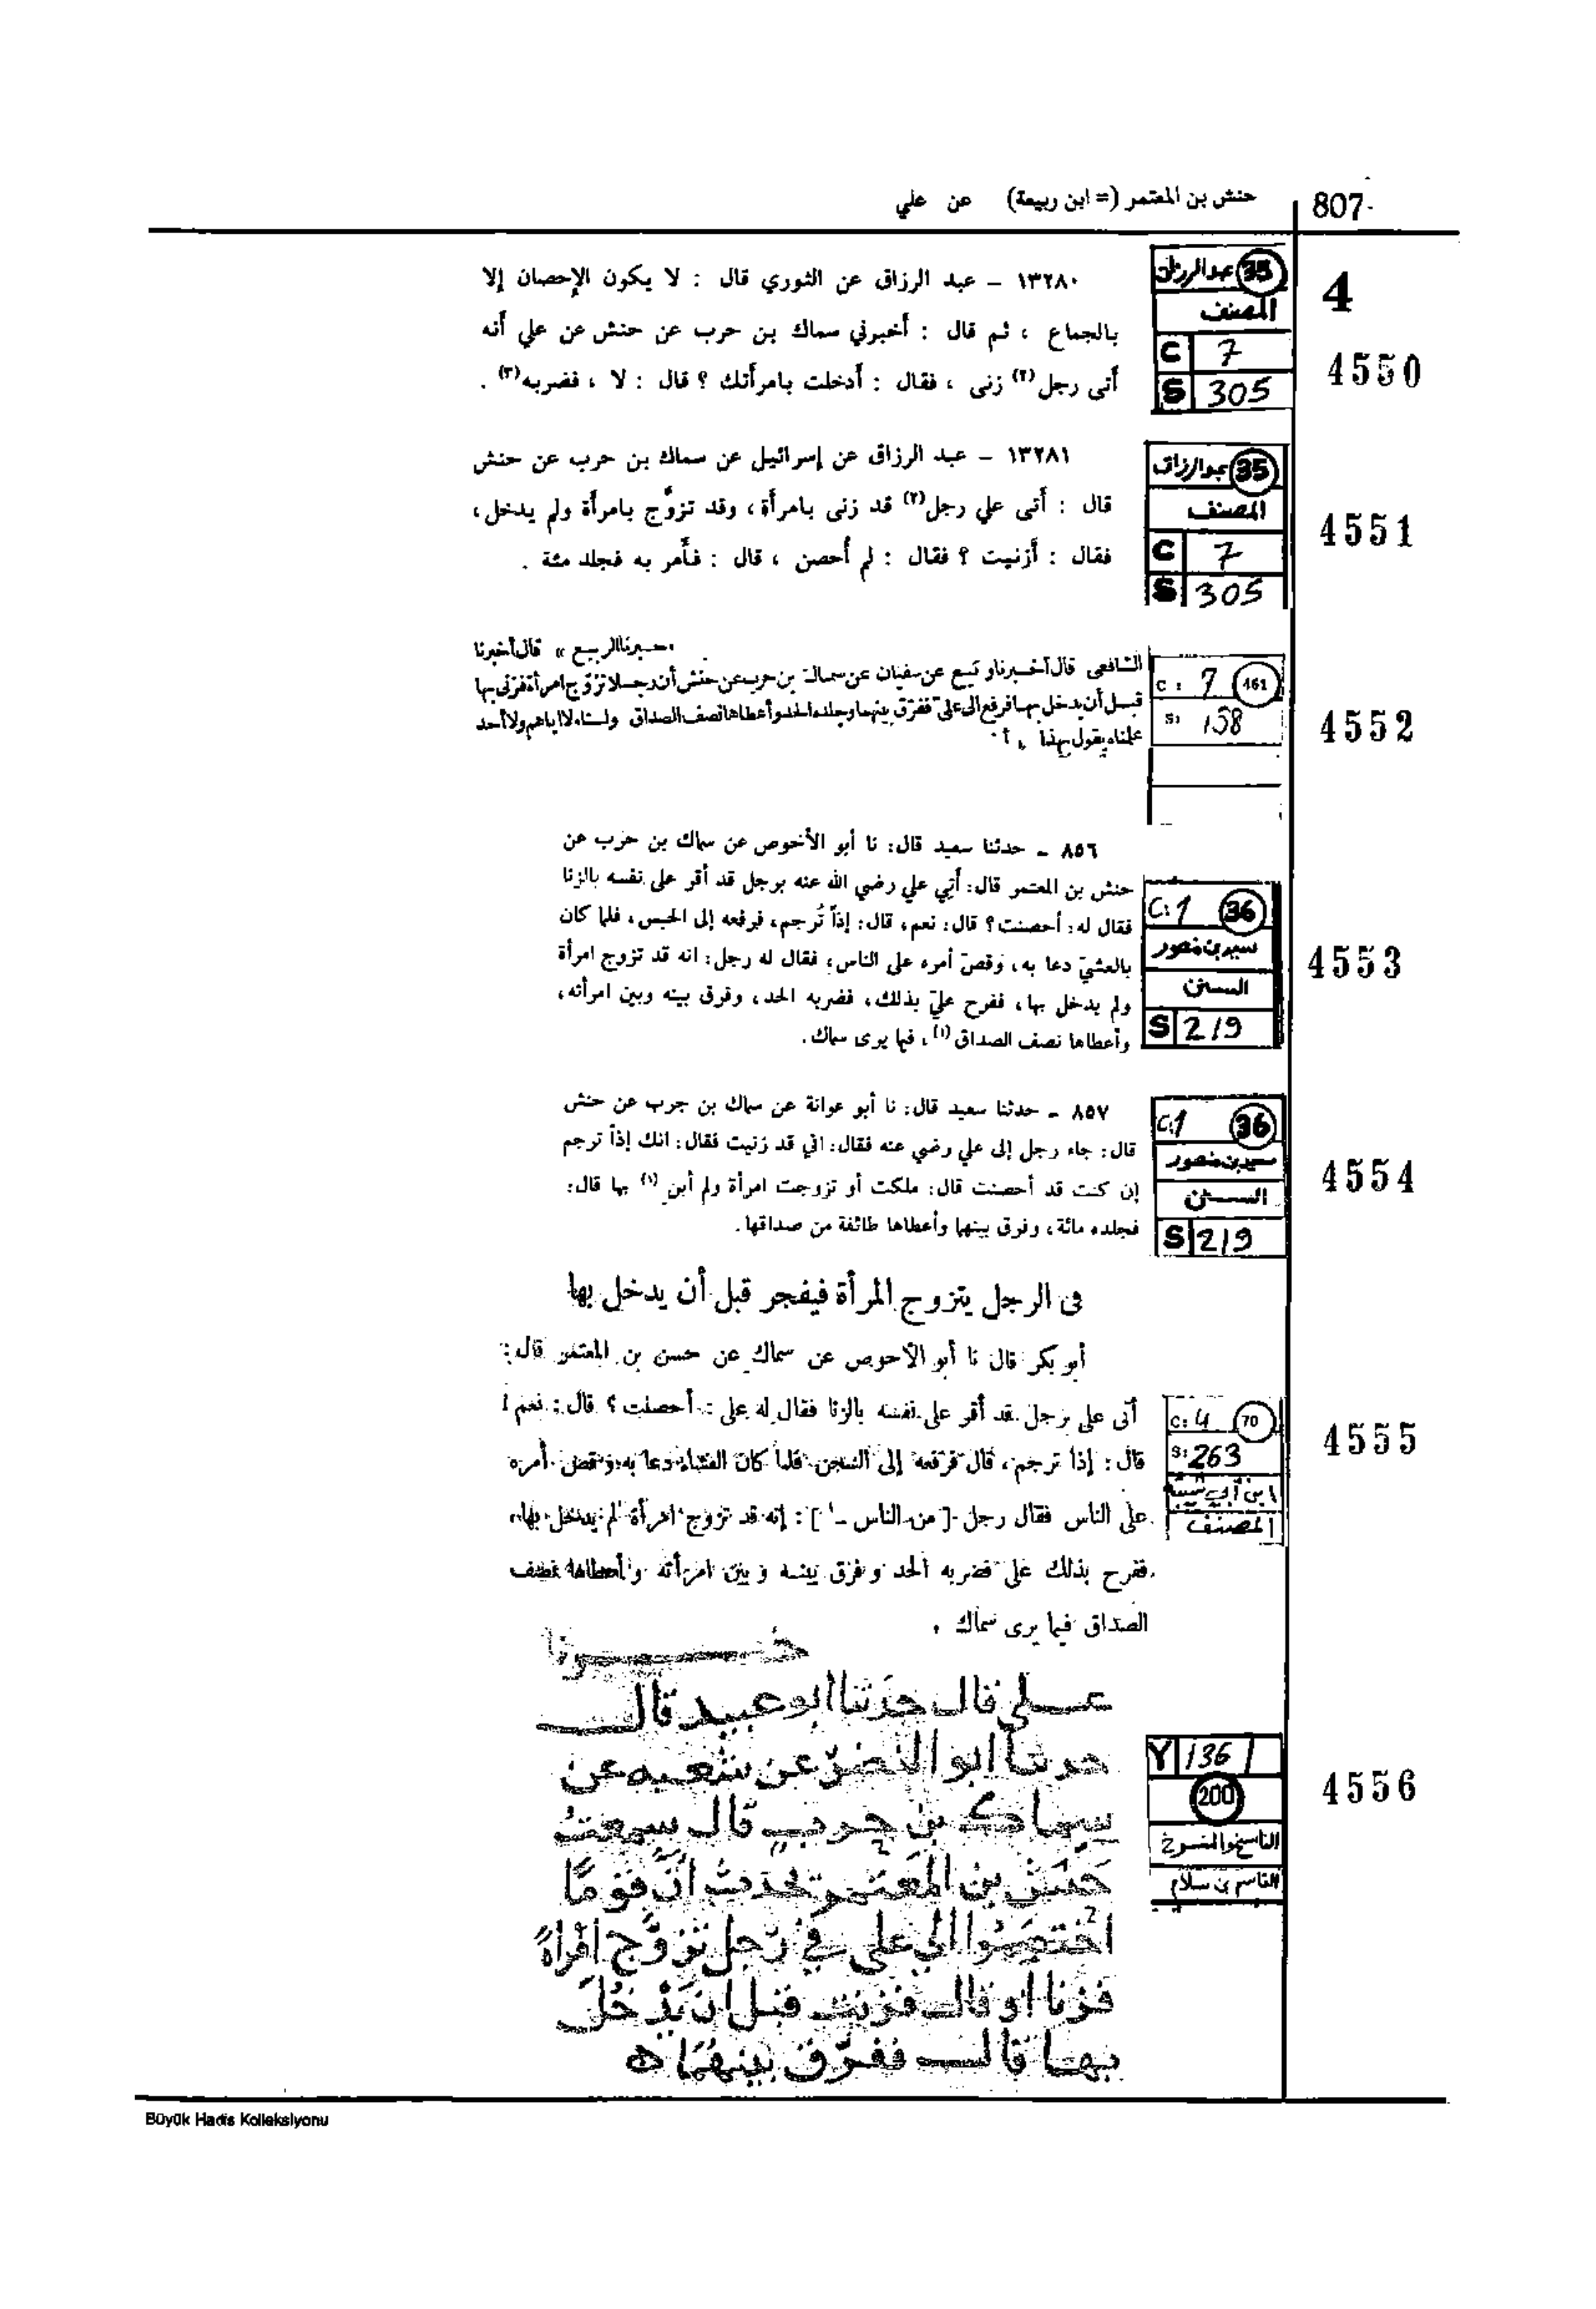 حنش بن المعتمر (= ابن ربيعة) عن علي
807
4
عبد الرزاق 35
المصنف
C 7
S 305
4550
١٣٢٨٠ – عبد الرزاق عن الثوري قال : لا يكون الإحصان إلا
بالجماع ، ثم قال : أخبرني سماك بن حرب عن حنش عن علي أنه
أتى رجل (٢) زنى ، فقال : أدخلت بامرأتك ؟ قال : لا ، فضربه (٣) .
عبد الرزاق 35
المصنف
C 7
S 305
4551
١٣٢٨١ – عبد الرزاق عن إسرائيل عن سماك بن حرب عن حنش
قال : أتى علي رجل (٢) قد زنى بامرأة ، وقد تزوّج بامرأة ولم يدخل ،
فقال : أزنيت ؟ فقال : لم أحصن ، قال : فأمر به فجلد مئة .
C : 7 461
S: 158
4552
الربيع » قال أخبرنا
الشافعى قال أخبرنا وكيع عن سفيان عن سماك بن حرب عن حنش أن رجلا تزوّج امرأة فزنى بها
قبل أن يدخل بها فرفع الى على ففرّق بينهما وجلده الحد وأعطاها نصف الصداق ولسنا ولا اياهم ولا أحد
علمناه يقول بهذا
C: 1 36
سعيد بن منصور
السنن
S 219
4553
٨٥٦ – حدثنا سعيد قال: نا أبو الأخوص عن سماك بن حرب عن
حنش بن المعتمر قال: أُتِي علي رضي الله عنه برجل قد أقر على نفسه بالزنا
فقال له: أحصنت؟ قال: نعم، قال: إذاً تُرجم، فرفعه إلى الحبس، فلما كان
بالعشيّ دعا به، وقصّ أمره على الناس، فقال له رجل: انه قد تزوج امرأة
ولم يدخل بها، ففرح عليّ بذلك، فضربه الحد، وفرق بينه وبين امرأته،
وأعطاها نصف الصداق (١)، فيما يرى سماك.
C: 1 36
سعيد بن منصور
السنن
S 219
4554
٨٥٧ – حدثنا سعيد قال: نا أبو عوانة عن سماك بن جرب عن حنش
قال: جاء رجل إلى علي رضي عنه فقال: اني قد زنيت فقال: انك إذاً ترجم
إن كنت قد أحصنت قال: ملكت أو تزوجت امرأة ولم أبن (١) بها قال:
فجلده مائة، وفرق بينهما وأعطاها طائفة من صداقها.
فى الرجل يتزوج المرأة فيفجر قبل أن يدخل بها
C: 4 70
S: 263
ابن أبي شيبة
المصنف
4555
أبو بكر قال نا أبو الأحوص عن سماك عن حسن بن المعتمر قال:
أتى على برجل قد أقر على نفسه بالزنا فقال له على : أحصنت ؟ قال : نعم !
قال : إذا ترجم ، قال فرفعه إلى السجن فلما كان العشاء دعا به وقص أمره
على الناس فقال رجل [ من الناس – ١ ] : إنه قد تزوج امرأة لم يدخل بها،
ففرح بذلك على فضربه الحد وفرق بينه وبين امرأته وأعطاها نصف
الصداق فيما يرى سماك .
Y 136
200
الناسخ والمنسوخ
القاسم بن سلام
4556
علي قال حدثنا ابو عبيد قال
حدثنا ابو النضر عن شعبه عن
سماك بن حرب قال سمعت
حنش بن المعتمر يحدث ان قوما
اختصموا الى على في رجل تزوج امراة
فزنا او قال فزنت قبل ان يدخل
بها قال ففرق بينهما
Büyük Hadis Kolleksiyonu